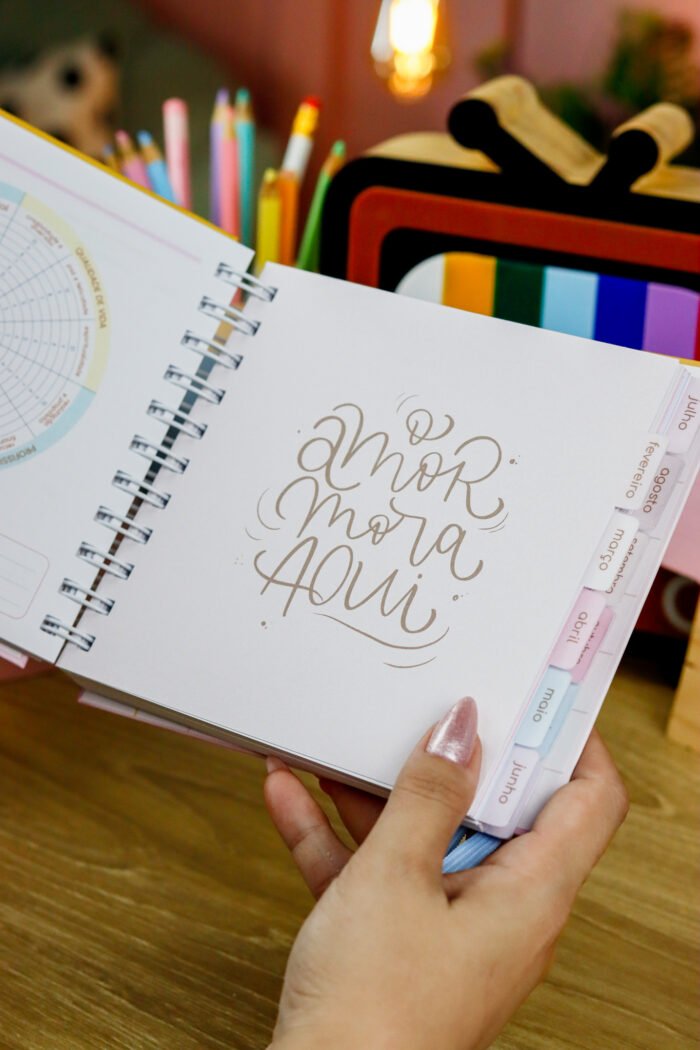 QUALIDADE DE VIDA
o
amor
mora
AQUI
julho
fevereiro
agosto
março
setembro
abril
outubro
maio
junho